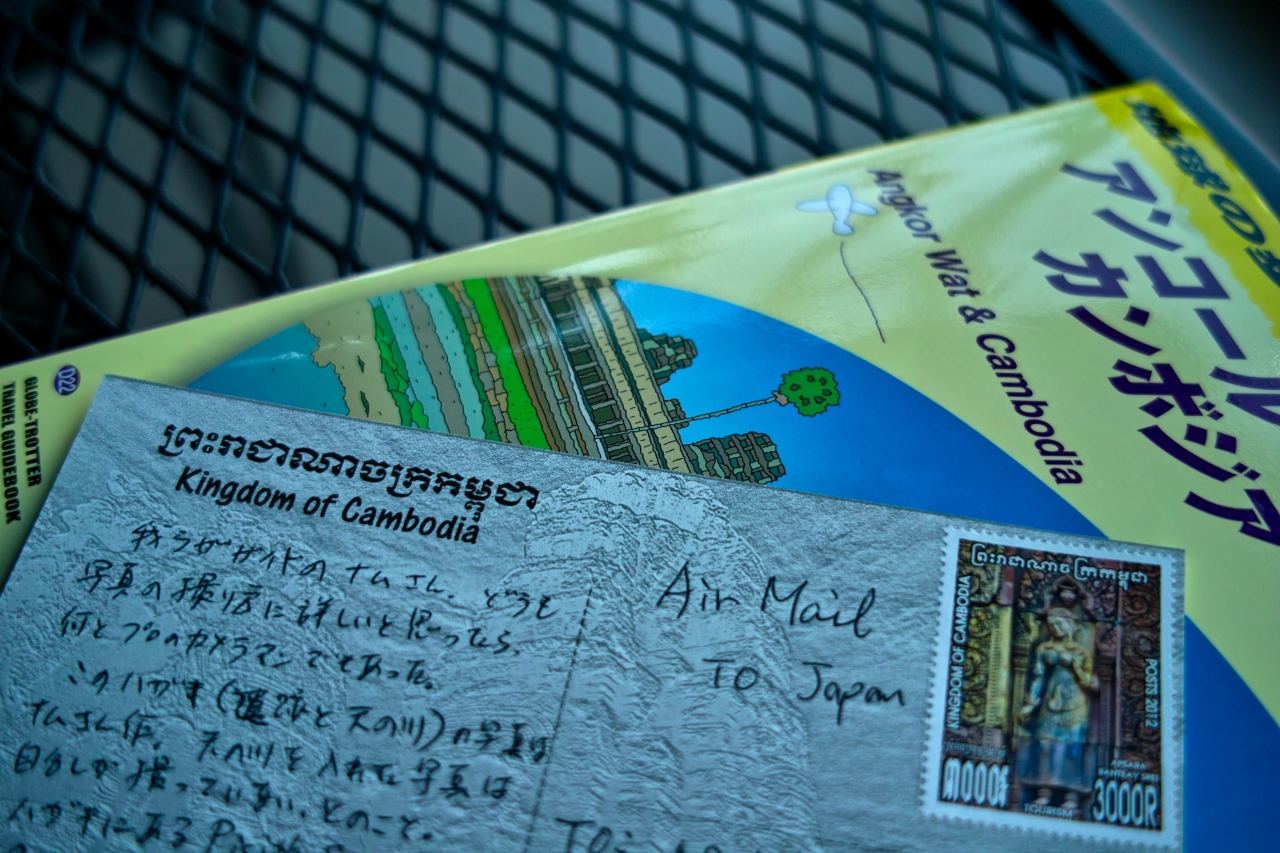 地球の歩
アンコール
カンボジア
Angkor Wat & Cambodia
D22
GLOBE-TROTTER
TRAVEL GUIDEBOOK
ព្រះរាជាណាចក្រកម្ពុជា
Kingdom of Cambodia
我らがガイドのナムさん。どうも
写真の撮り方に詳しいと思ったら、
何とプロのカメラマンでもあった。
このハガキ(遺跡と天の川)の写真は
ナムさん作。天の川を入れた写真は
自分しか撮っていない、とのこと。
ハガキにある
Air Mail
To Japan
ព្រះរាជាណាចក្រកម្ពុជា
KINGDOM OF CAMBODIA
POSTS 2012
APSARA
BANTEAY SREI
៣០០០៛
3000R
TOURISM